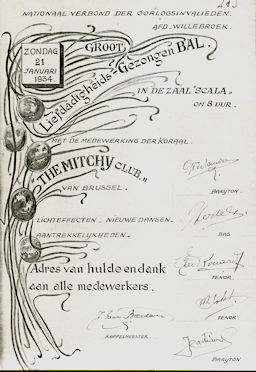 NATIONAAL VERBOND DER OORLOGSINVALIEDEN.
AFD. WILLEBROEK.
ZONDAG
21
JANUARI
1934.
GROOT
Liefdadigheids-Gezongen BAL.
IN DE ZAAL "SCALA"
OM 8 UUR.
MET DE MEDEWERKING DER KORAAL.
"THE MITCHY CLUB"
VAN BRUSSEL.
BARYTON.
BAS
LICHTEFFECTEN. NIEUWE DANSEN.
AANTREKKELIJKHEDEN.
TENOR.
Adres van hulde en dank
aan alle medewerkers.
TENOR
KAPPELMEESTER.
BARYTON